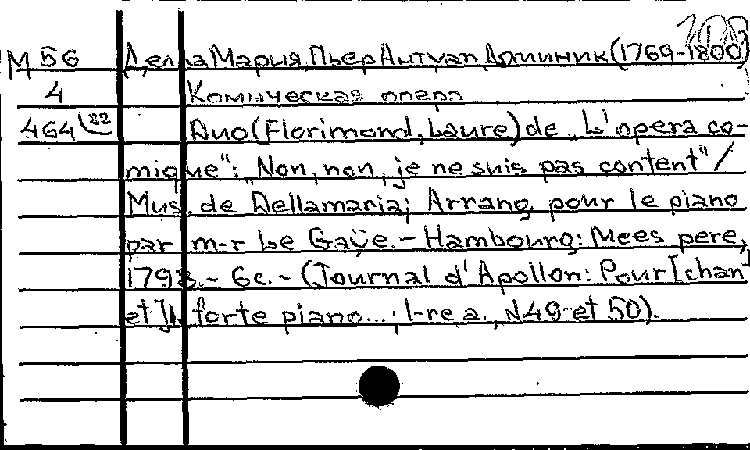 М 56 Делла Мария, Пьер Антуан Доминик (1769-1800)
4 Комическая опера
464 22 Duo (Florimond, Laure) de „L'opera co-
mique": „Non, non, je ne suis pas content"/
Mus. de Dellamaria; Arrang. pour le piano
par m-r Le Gaÿe. - Hambourg: Mees pere,
1798. - 6c. - (Journal d'Apollon: Pour [chan
et] forte piano...; 1-re a., N49 et 50).